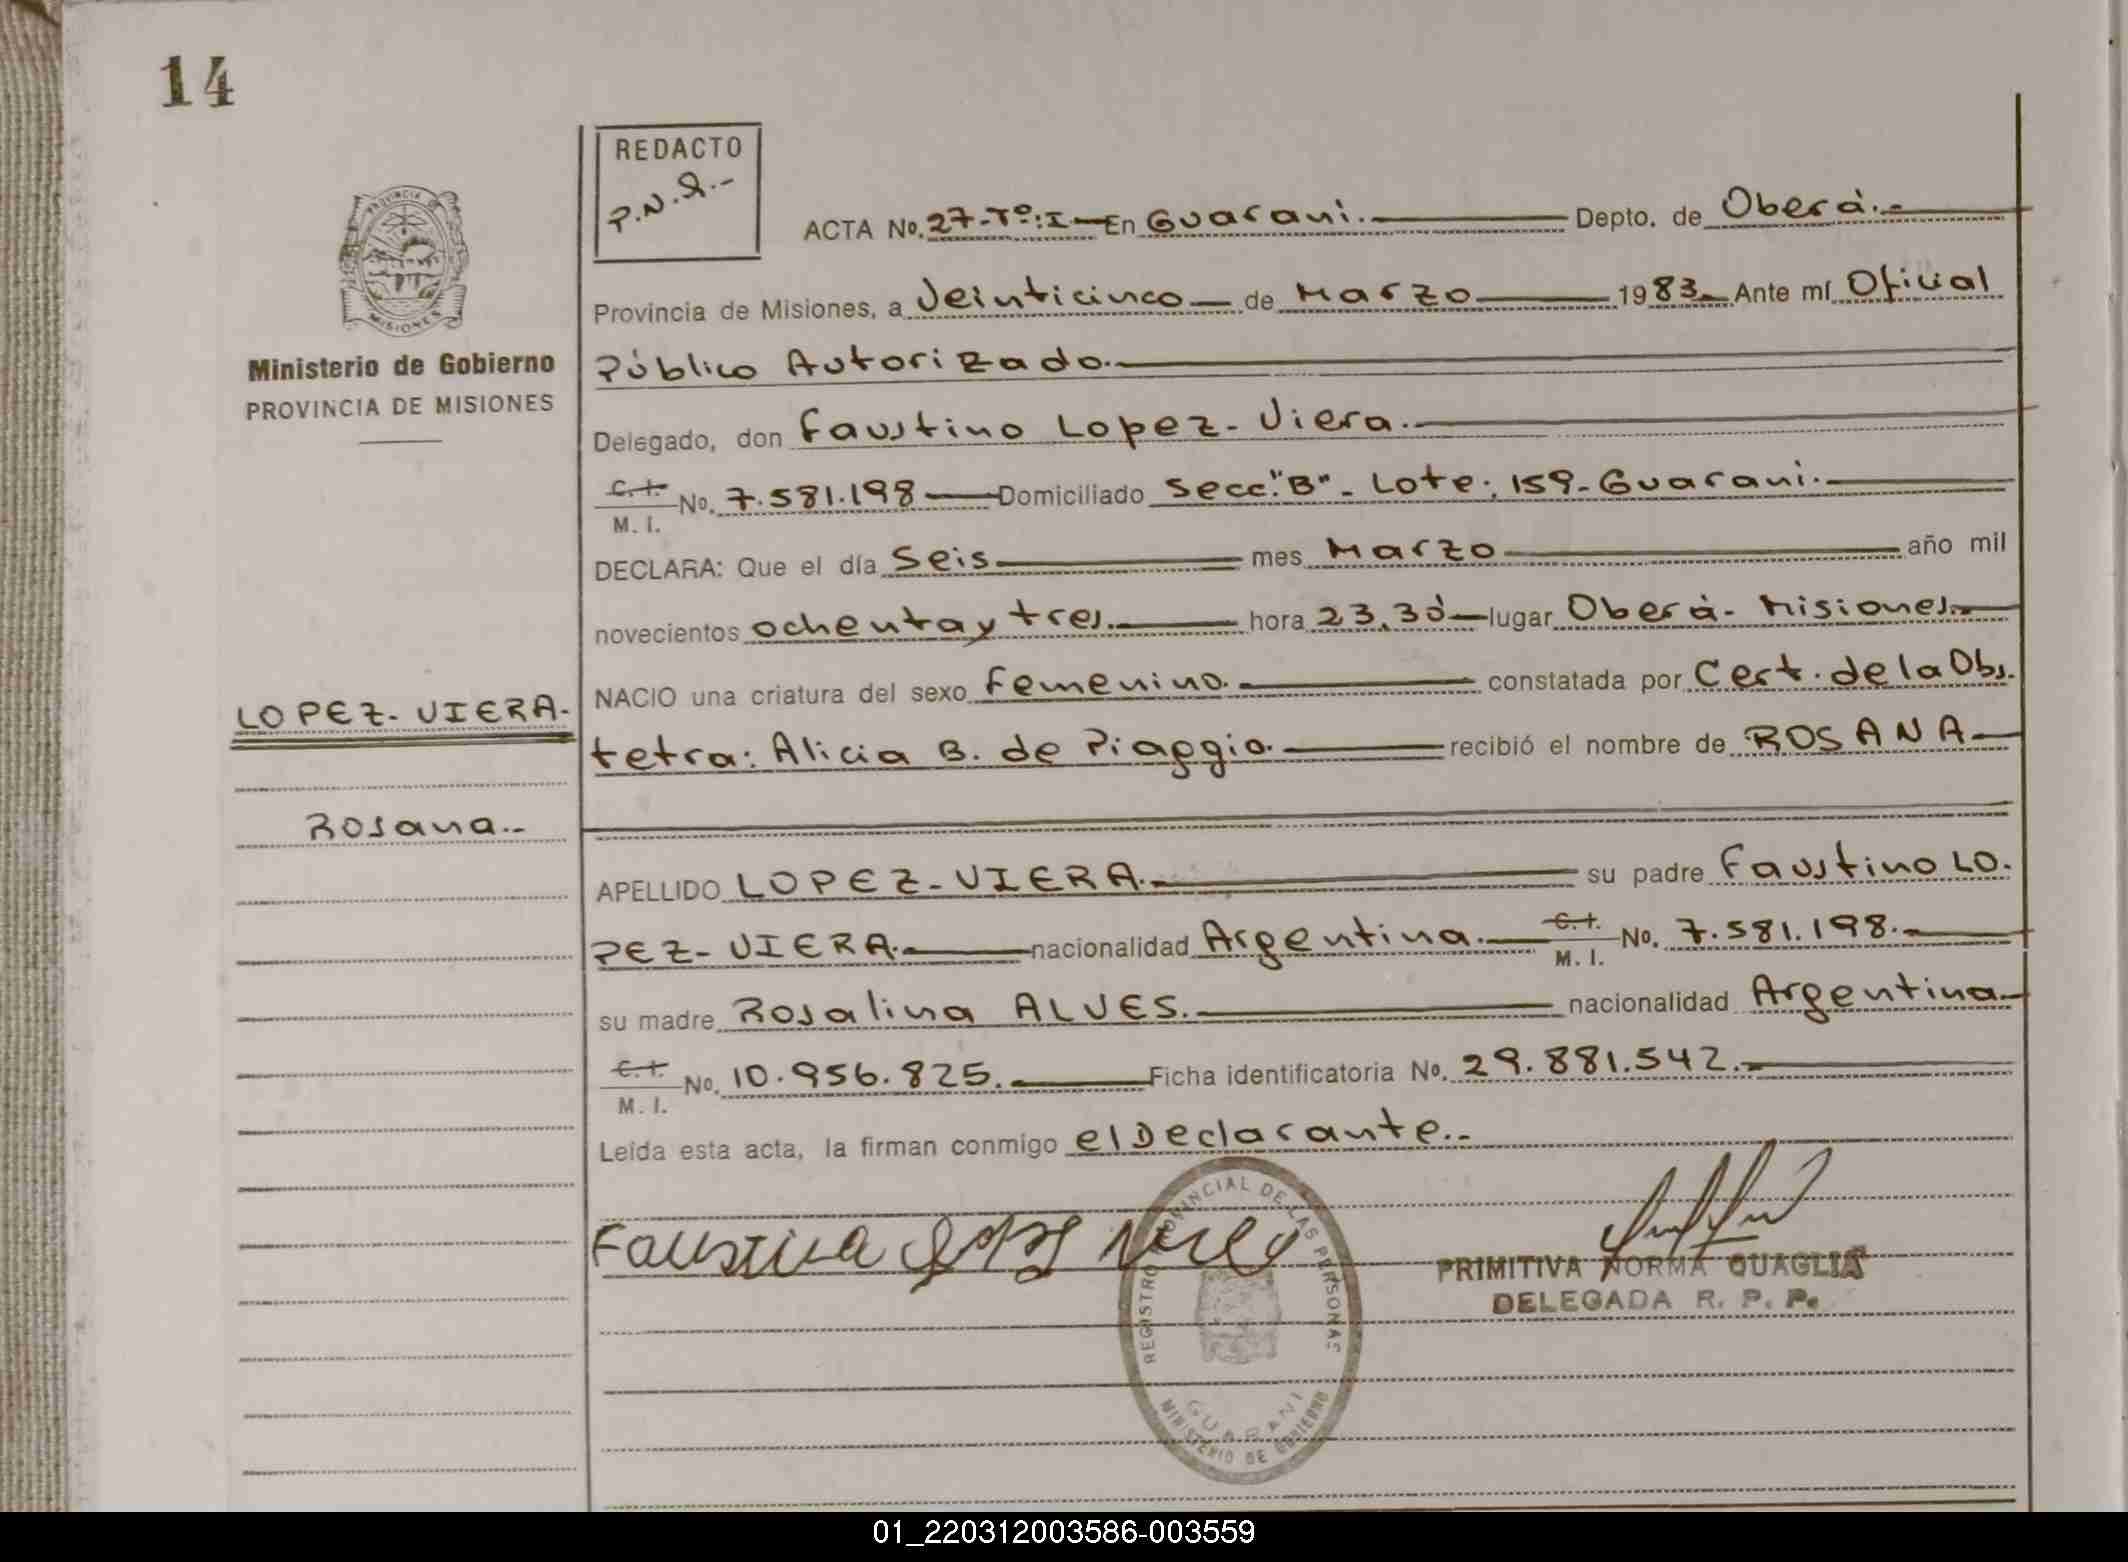 14
REDACTO
P.N.Q.-
ACTA No. 27-Tº:I- En Guaraní.- Depto. de Oberá.-
PROVINCIA DE
MISIONES
Provincia de Misiones, a Veinticinco de Marzo 1983 Ante mí Oficial
Ministerio de Gobierno
PROVINCIA DE MISIONES
Público Autorizado.-
Delegado, don Faustino Lopez-Viera.-
C.I.
M. I. No. 7.581.198 Domiciliado Secc."B"- Lote: 159-Guaraní.-
DECLARA: Que el día Seis mes Marzo año mil
novecientos ochenta y tres.- hora 23,30 lugar Oberá- Misiones.-
NACIO una criatura del sexo Femenino.- constatada por Cert. de la Obs.
LOPEZ-VIERA.-
tetra: Alicia B. de Piaggio.- recibió el nombre de ROSANA
Rosana.-
APELLIDO LOPEZ-VIERA.- su padre Faustino LO.
PEZ-VIERA.- nacionalidad Argentina.- C.I.
M. I. No. 7.581.198.-
su madre Rosalina ALVES.- nacionalidad Argentina.-
C.I.
M. I. No. 10.956.825.- Ficha identificatoria No. 29.881.542.-
Leída esta acta, la firman conmigo el Declarante.-
REGISTRO PROVINCIAL DE LAS PERSONAS
GUARANI
MINISTERIO DE GOBIERNO
PRIMITIVA NORMA QUAGLIA
DELEGADA R. P. P.
01_220312003586-003559